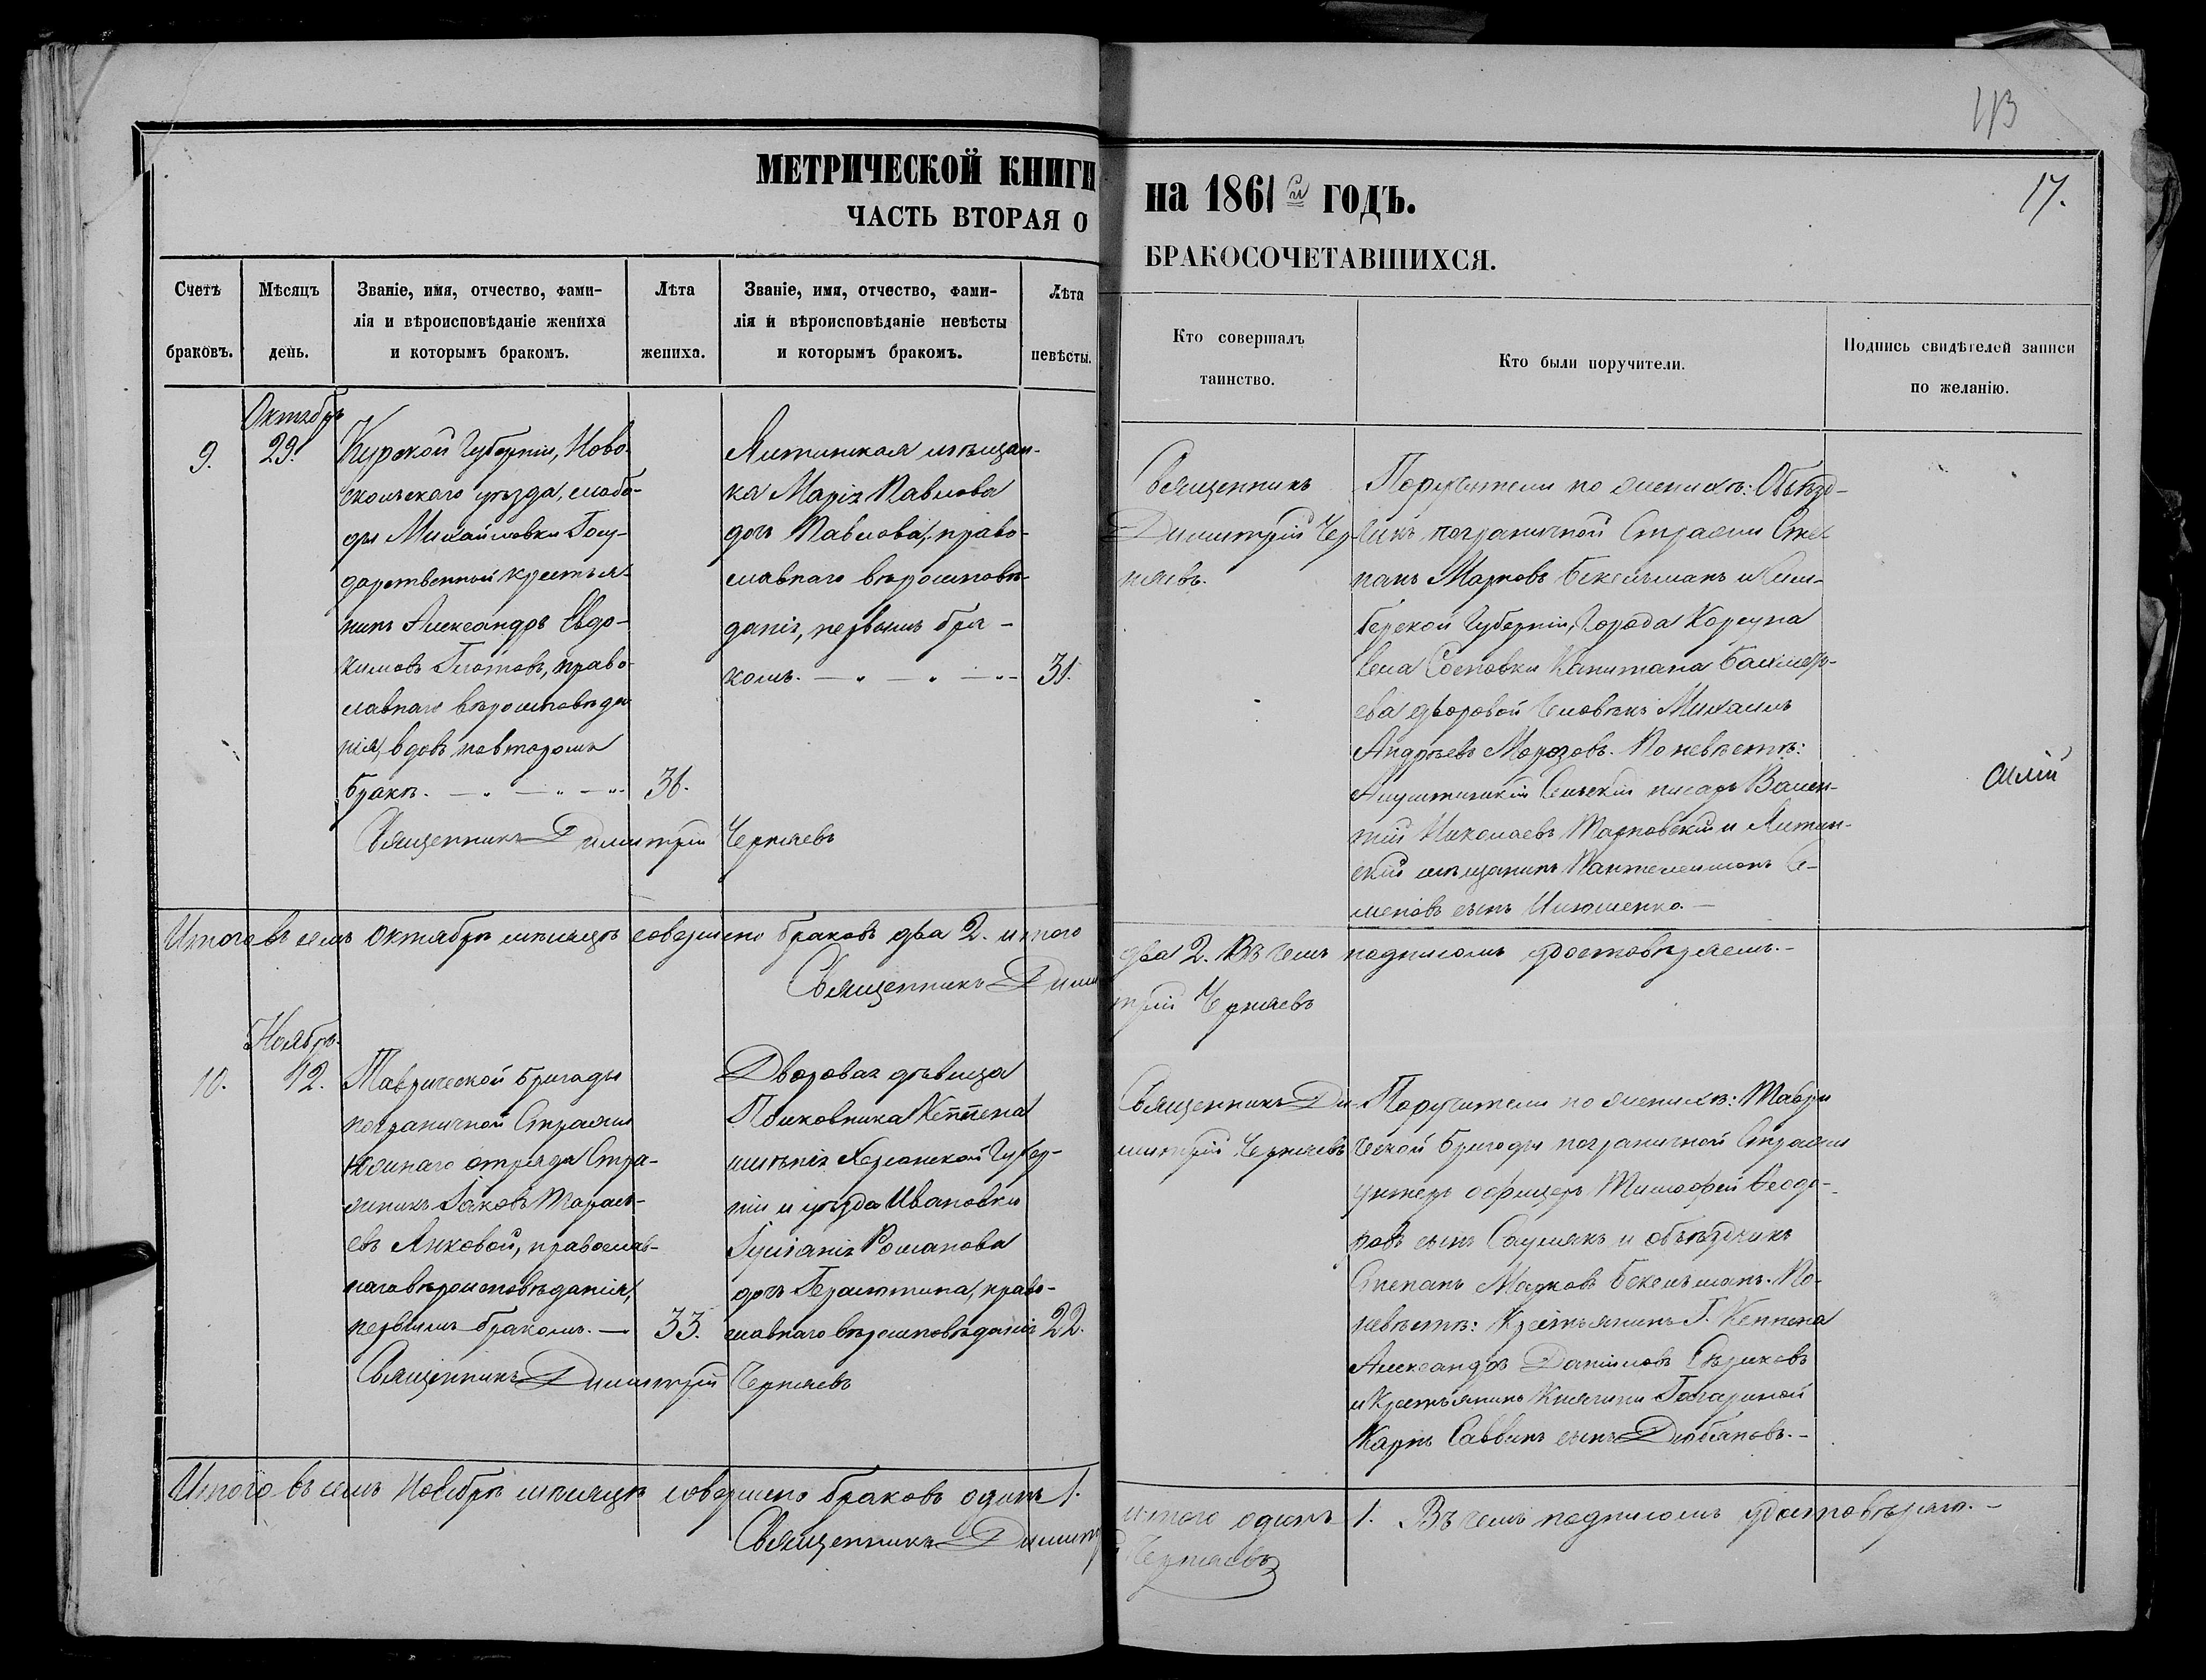 113
МЕТРИЧЕСКОЙ КНИГИ на 1861й ГОДЪ.
17.
ЧАСТЬ ВТОРАЯ О БРАКОСОЧЕТАВШИХСЯ.
Счетъ браковъ.
Мѣсяцъ день.
Званіе, имя, отчество, фами-
лія и вѣроисповѣданіе жениха
и которымъ бракомъ.
Лѣта жениха.
Званіе, имя, отчество, фами-
лія и вѣроисповѣданіе невѣсты
и которымъ бракомъ.
Лѣта невѣсты.
Кто совершалъ
таинство.
Кто были поручители.
Подпись свидѣтелей записи
по желанію.
9.
Октябрь
29.
Курской Губерніи, Ново-
скольскаго уѣзда, слобо-
ды Михайловки Госу-
дарственной крестья-
нинъ Александръ Евдо-
кимовъ Глотовъ, право-
славнаго вѣроисповѣда
нія, вдовъ по второмъ
бракѣ.
31.
Ялтинская мѣщан-
ка Марія Павлова
дочь Павлова, право-
славнаго вѣроисповѣ-
данія, первымъ бра-
комъ.
31.
Священникъ
Димитрій Чер-
няевъ.
Поручители по женихѣ: Объѣзд-
чикъ пограничной Стражи Сте
панъ Марковъ Бекельманъ и Сим-
берской Губерніи, Города Корсуна
Села Сосновки Капитана
ева дворовой Человѣкъ Михаилъ
Андреевъ Морозовъ. По невѣстѣ:
Алуштинскій Сельскій писарь Вален-
тій Николаевъ Тарновскій и Ялтин-
скій мѣщанинъ Пантелеимонъ Се-
меновъ сынъ Илюшенко.
Священникъ Димитрій Черняевъ
Итого въ семъ Октябрѣ мѣсяцѣ совершено браковъ два 2. итого два 2. Въ чемъ подписомъ удостовѣряемъ.
Священникъ Димитрій Черняевъ
10.
Ноябрь.
12.
Таврической бригады
пограничной Стражи
Южнаго отряда Стра-
жникъ Іаковъ Тарась-
евъ Янковой, православ-
наго вѣроисповѣданія,
первымъ бракомъ.
33.
Дворовая дѣвица
Полковника Кеппена
имѣнія Херсонской Губер-
ніи и уѣзда Ивановки
Іуліанія Романова
дочь Герасютина, право-
славнаго вѣроисповѣданія
22.
Священникъ Ди-
митрій Черняевъ
Поручители по женихѣ: Таври
ческой бригады пограничной Стражи
унтеръ офицеръ Тимофей Ѳеодо-
ровъ сынъ и объѣздчикъ
Степанъ Марковъ Бекельманъ. По
невѣстѣ: Крестьянинъ Г. Кеппена
Александръ Даніиловъ
и Крестьянинъ Княгини Гагариной
Карпъ Саввинъ сынъ
Священникъ Димитрій Черняевъ
Итого въ семъ Ноябрѣ мѣсяцѣ совершено браковъ одинъ 1. итого одинъ 1. Въ чемъ подписомъ удостовѣряю.
Священникъ Димитрій Черняевъ